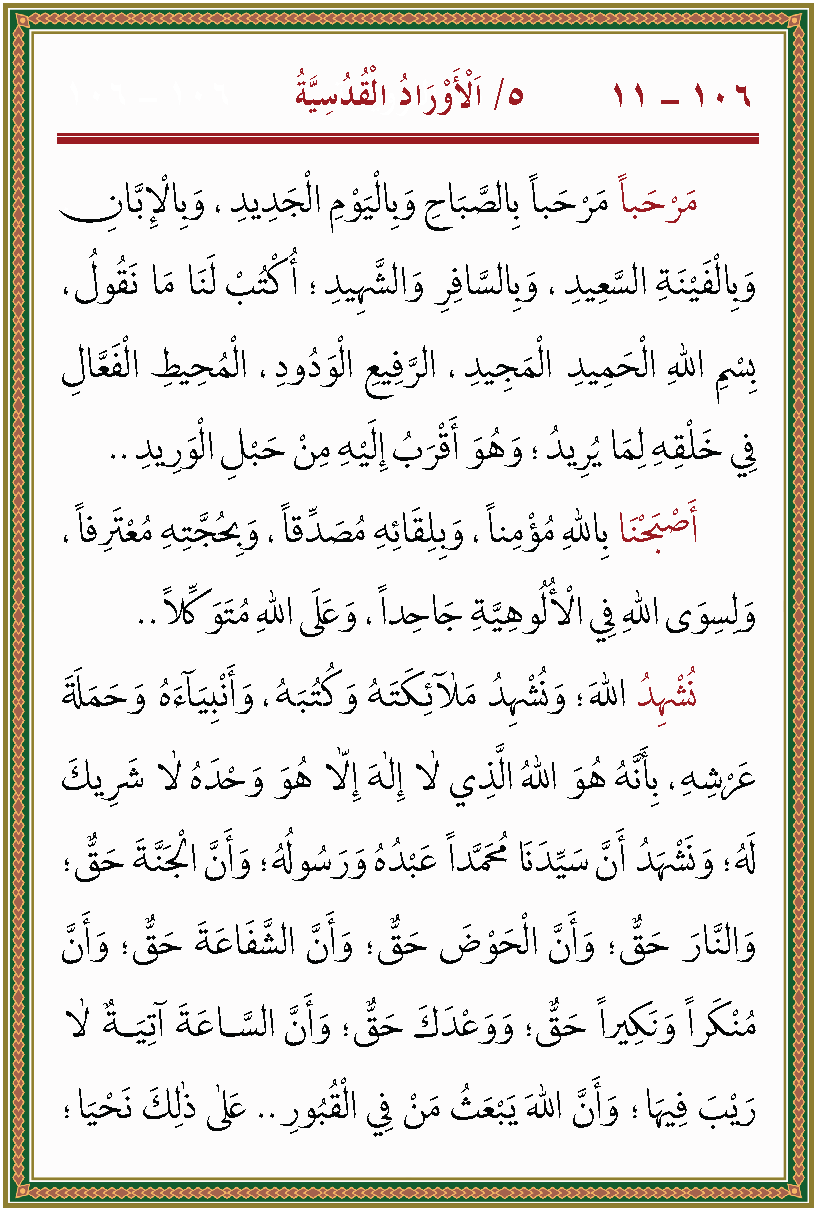 ١٠٦ – ١١ ٥/ اَلْأَوْرَادُ الْقُدْسِيَّةُ
مَرْحَباً مَرْحَباً بِالصَّبَاحِ وَبِالْيَوْمِ الْجَدِيدِ ، وَبِالْإِبَّانِ
وَبِالْفَيْنَةِ السَّعِيدِ ، وَبِالسَّافِرِ وَالشَّهِيدِ ؛ أُكْتُبْ لَنَا مَا نَقُولُ ،
بِسْمِ اللهِ الْحَمِيدِ الْمَجِيدِ ، الرَّفِيعِ الْوَدُودِ ، الْمُحِيطِ الْفَعَّالِ
فِي خَلْقِهِ لِمَا يُرِيدُ ؛ وَهُوَ أَقْرَبُ إِلَيْهِ مِنْ حَبْلِ الْوَرِيدِ ..
أَصْبَحْنَا بِاللهِ مُؤْمِناً ، وَبِلِقَائِهِ مُصَدِّقاً ، وَبِحُجَّتِهِ مُعْتَرِفاً ،
وَلِسِوَى اللهِ فِي الْأُلُوهِيَّةِ جَاحِداً ، وَعَلَى اللهِ مُتَوَكِّلاً ..
نُشْهِدُ اللهَ ؛ وَنُشْهِدُ مَلٰٓائِكَتَهُ وَكُتُبَهُ ، وَأَنْبِيَآءَهُ وَحَمَلَةَ
عَرْشِهِ ، بِأَنَّهُ هُوَ اللهُ الَّذِي لٰا إِلٰهَ إِلّٰا هُوَ وَحْدَهُ لٰا شَرِيكَ
لَهُ ؛ وَنَشْهَدُ أَنَّ سَيِّدَنَا مُحَمَّداً عَبْدُهُ وَرَسُولُهُ ؛ وَأَنَّ الْجَنَّةَ حَقٌّ ؛
وَالنَّارَ حَقٌّ ؛ وَأَنَّ الْحَوْضَ حَقٌّ ؛ وَأَنَّ الشَّفَاعَةَ حَقٌّ ؛ وَأَنَّ
مُنْكَراً وَنَكِيراً حَقٌّ ؛ وَوَعْدَكَ حَقٌّ ؛ وَأَنَّ السَّاعَةَ آتِيَةٌ لٰا
رَيْبَ فِيهَا ؛ وَأَنَّ اللهَ يَبْعَثُ مَنْ فِي الْقُبُورِ .. عَلٰى ذٰلِكَ نَحْيَا ؛